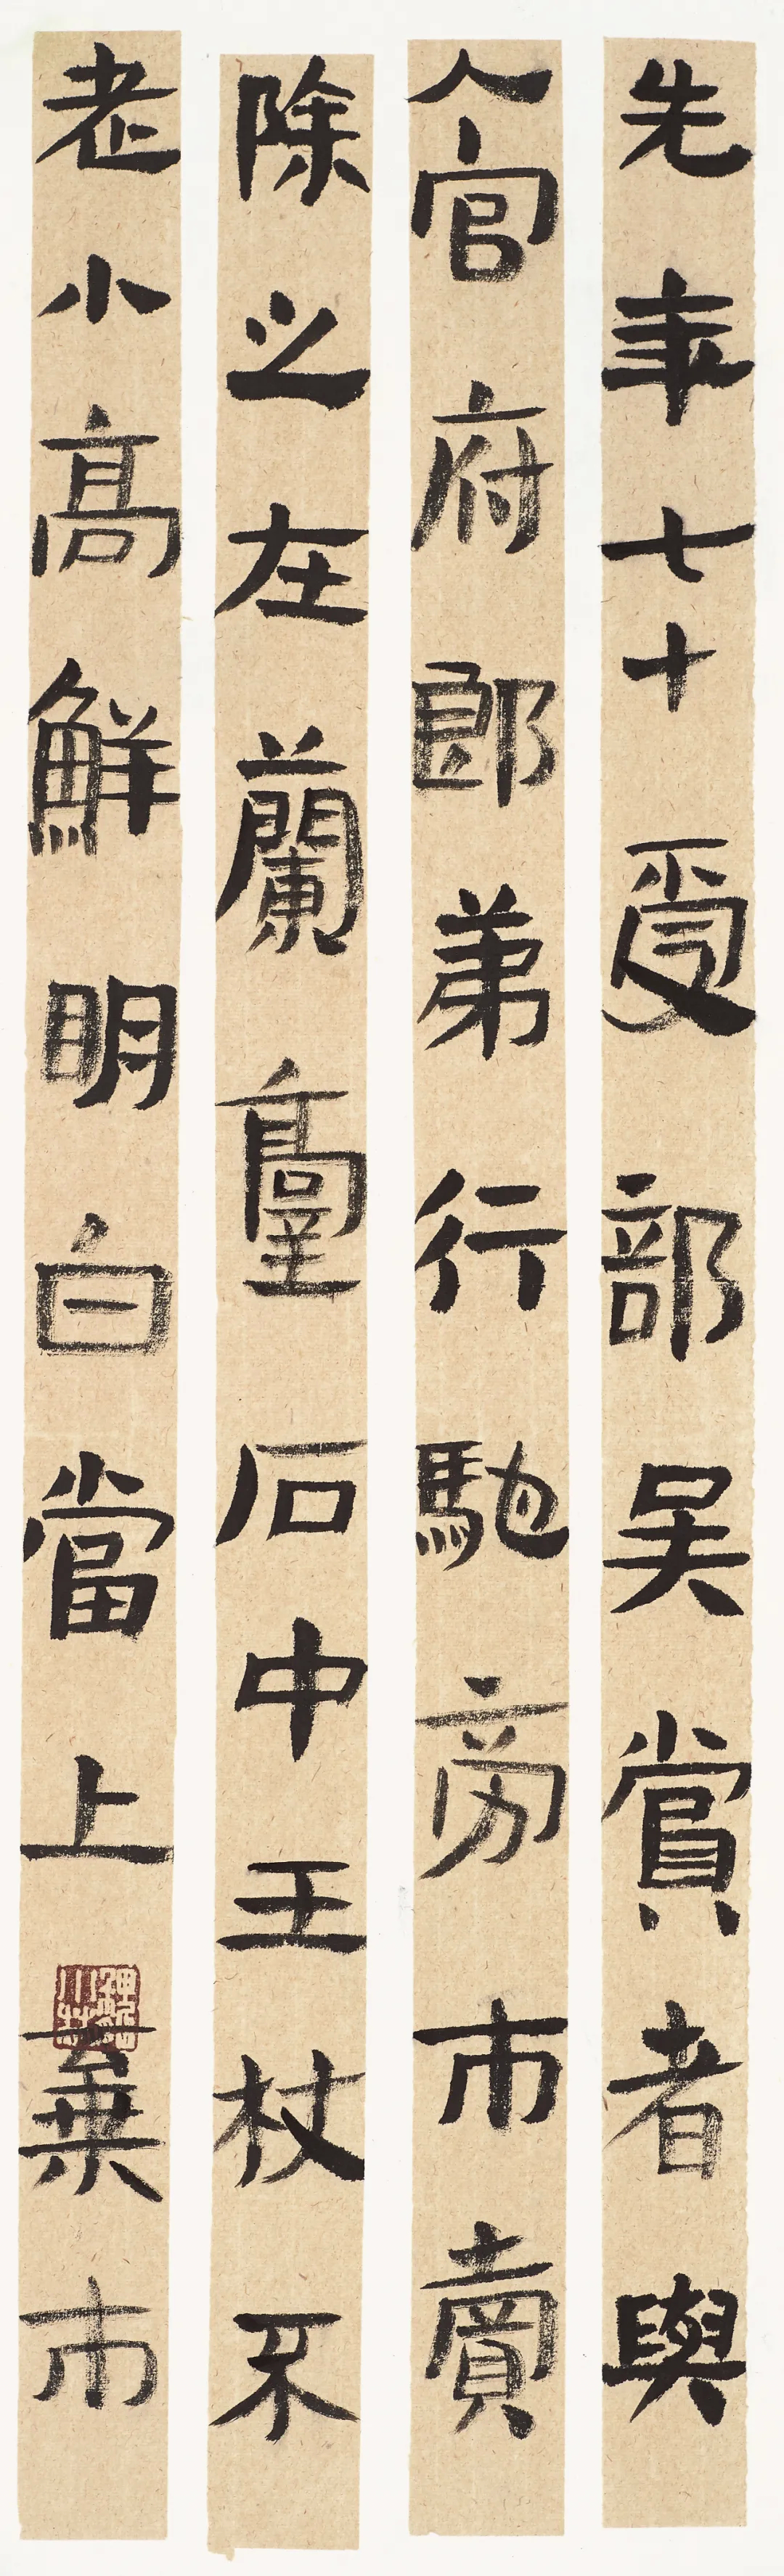 先年七十受部吴賞者與
人官府郎弟行馳旁市賣
除之在蘭臺石中王杖不
老小高鮮明白當上棄市